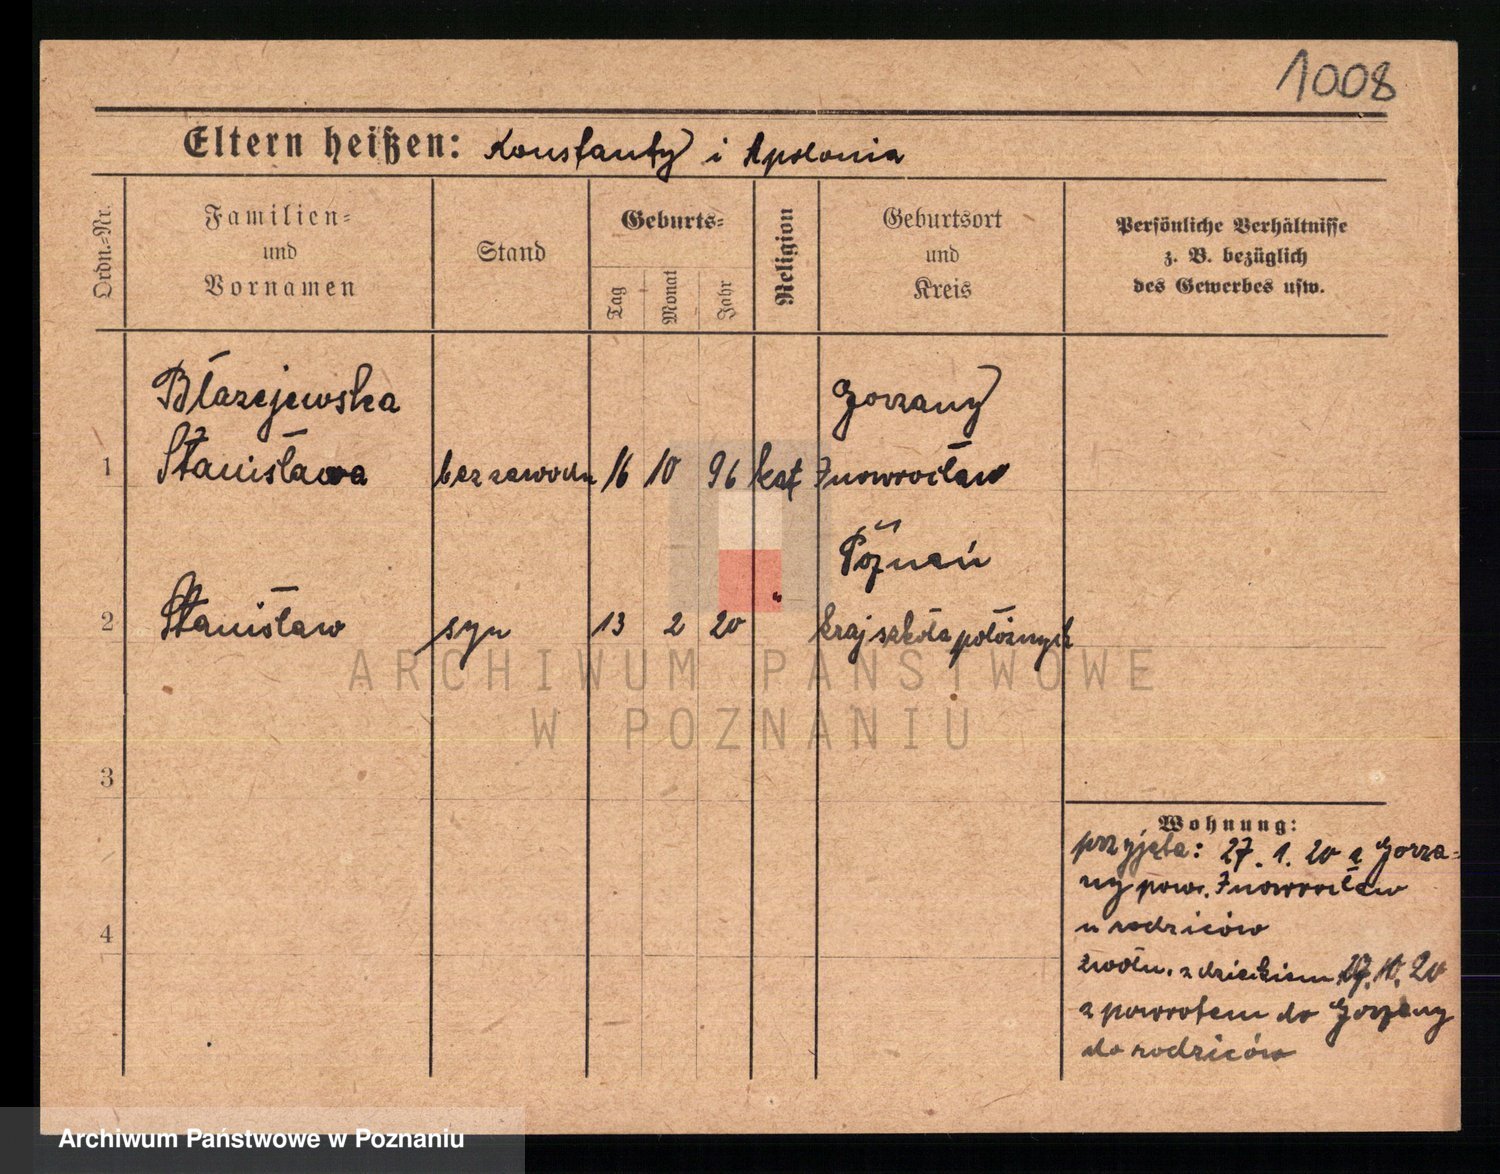 1008
Eltern heißen: Konstanty i Apolonia
Ordn.-Nr.
Familien- und Vornamen
Stand
Geburts-
Tag
Monat
Jahr
Religion
Geburtsort und Kreis
Persönliche Verhältnisse
z. B. bezüglich
des Gewerbes usw.
Błażejewska Gorzany
1 Stanisława bez zawodu 16 10 96 kat Inowrocław
Poznań
2 Stanisław syn 13 2 20 " kraj szkoła położnych
3
4
Wohnung:
przyjęta: 27. 1. 20 z Gorza-
ny pow. Inowrocław
u rodziców
zwoln. z dzieckiem 10. 20
z powrotem do Gorzany
do rodziców
ARCHIWUM PAŃSTWOWE
W POZNANIU
Archiwum Państwowe w Poznaniu